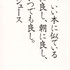 いい本に似ている
夜に良し、朝に良し。
いつでも良し。
ジュース